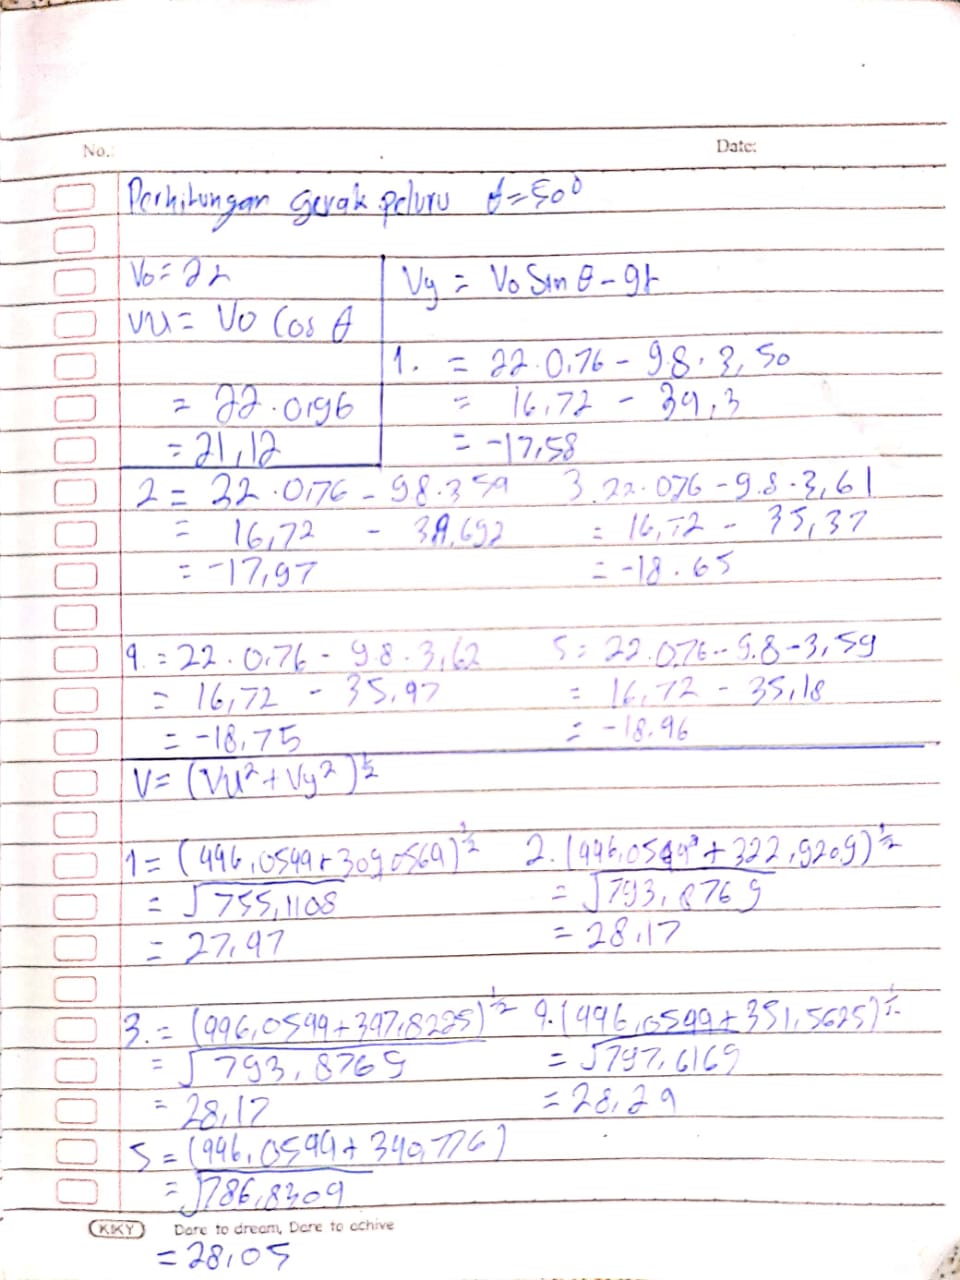 No.:
Date:
Perhitungan gerak peluru θ=50⁰
V0 = 22
Vu = V0 Cos θ
= 22 . 0,96
= 21,12
Vy = V0 Sin θ - gt
1. = 22 . 0,76 - 9.8 . 3,50
= 16,72 - 34,3
= -17,58
2 = 22 . 0,76 - 9.8 . 3 59
= 16,72 - 34,692
= -17,97
3. 22 . 0,76 - 9.8 . 3,61
= 16,72 - 35,37
= -18.65
4. = 22 . 0,76 - 9.8 . 3,62
= 16,72 - 35,47
= -18,75
5 = 22 . 0,76 - 9.8 - 3,59
= 16,72 - 35,18
= -18.46
V = (Vu² + Vy²)½
1 = (446,0544 + 309,0564)½
= √755,1108
= 27,47
2. (446,0544² + 322,9209)½
= √793,8769
= 28,17
3. = (446,0544 + 347,8225)½
= √793,8769
= 28,17
4. (446,0544 + 351,5625)½
= √797,6169
= 28,24
5 = (446,0544 + 340,776)
= √786,8304
= 28,05
KIKY
Dare to dream, Dare to achive